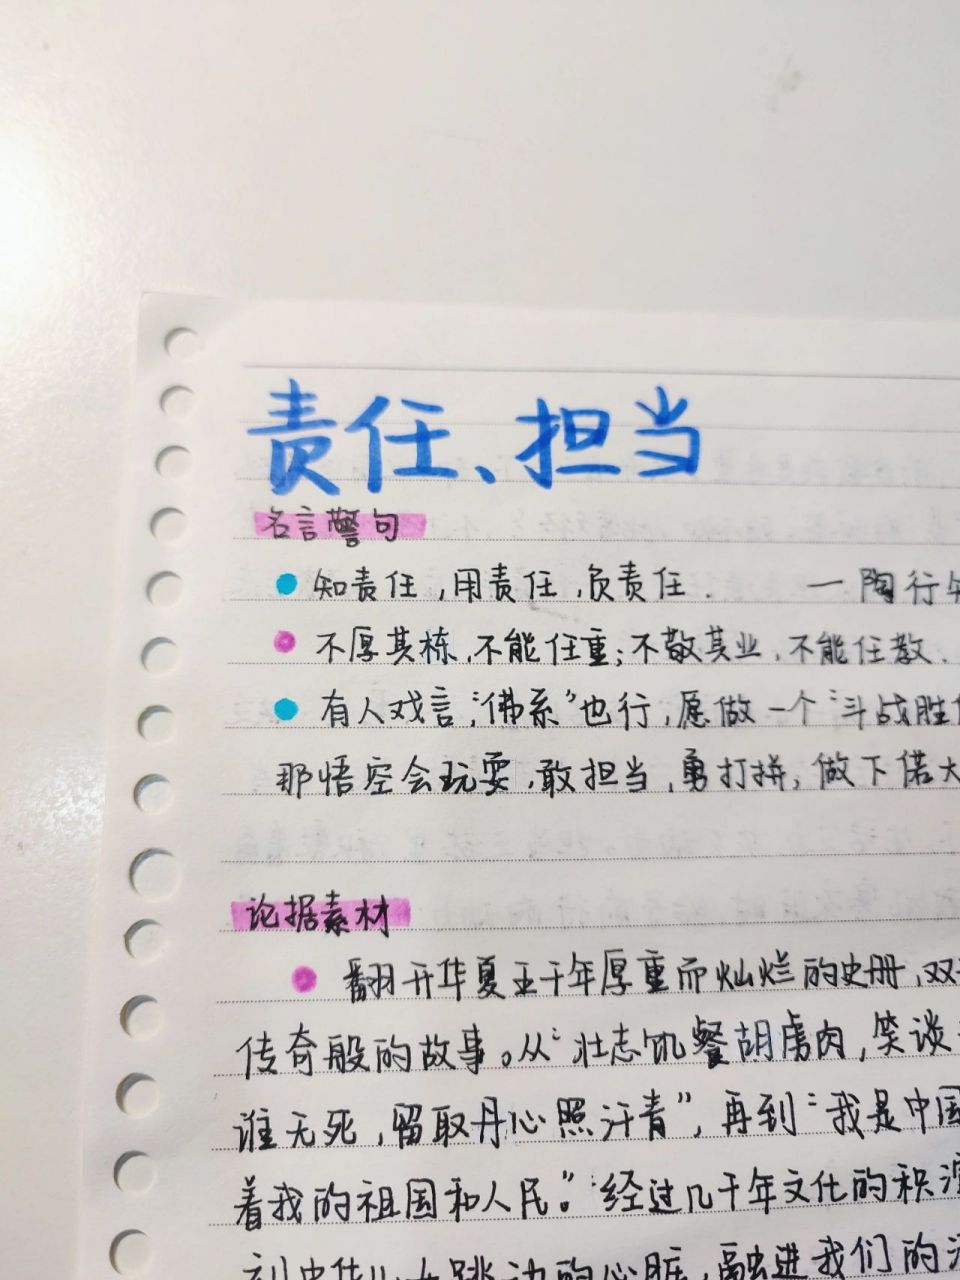 责任、担当
名言警句
知责任，用责任，负责任. — 陶行
不厚其栋，不能任重；不敬其业，不能任教.
有人戏言，“佛系”也行，愿做一个“斗战胜
那悟空会玩耍，敢担当，勇打拼，做下偌大
论据素材
翻开华夏五千年厚重而灿烂的史册，双
传奇般的故事。从“壮志饥餐胡虏肉，笑谈
谁无死，留取丹心照汗青”，再到“我是中国
着我的祖国和人民。”经过几千年文化的积
到中华儿女跳动的心脏，融进我们的